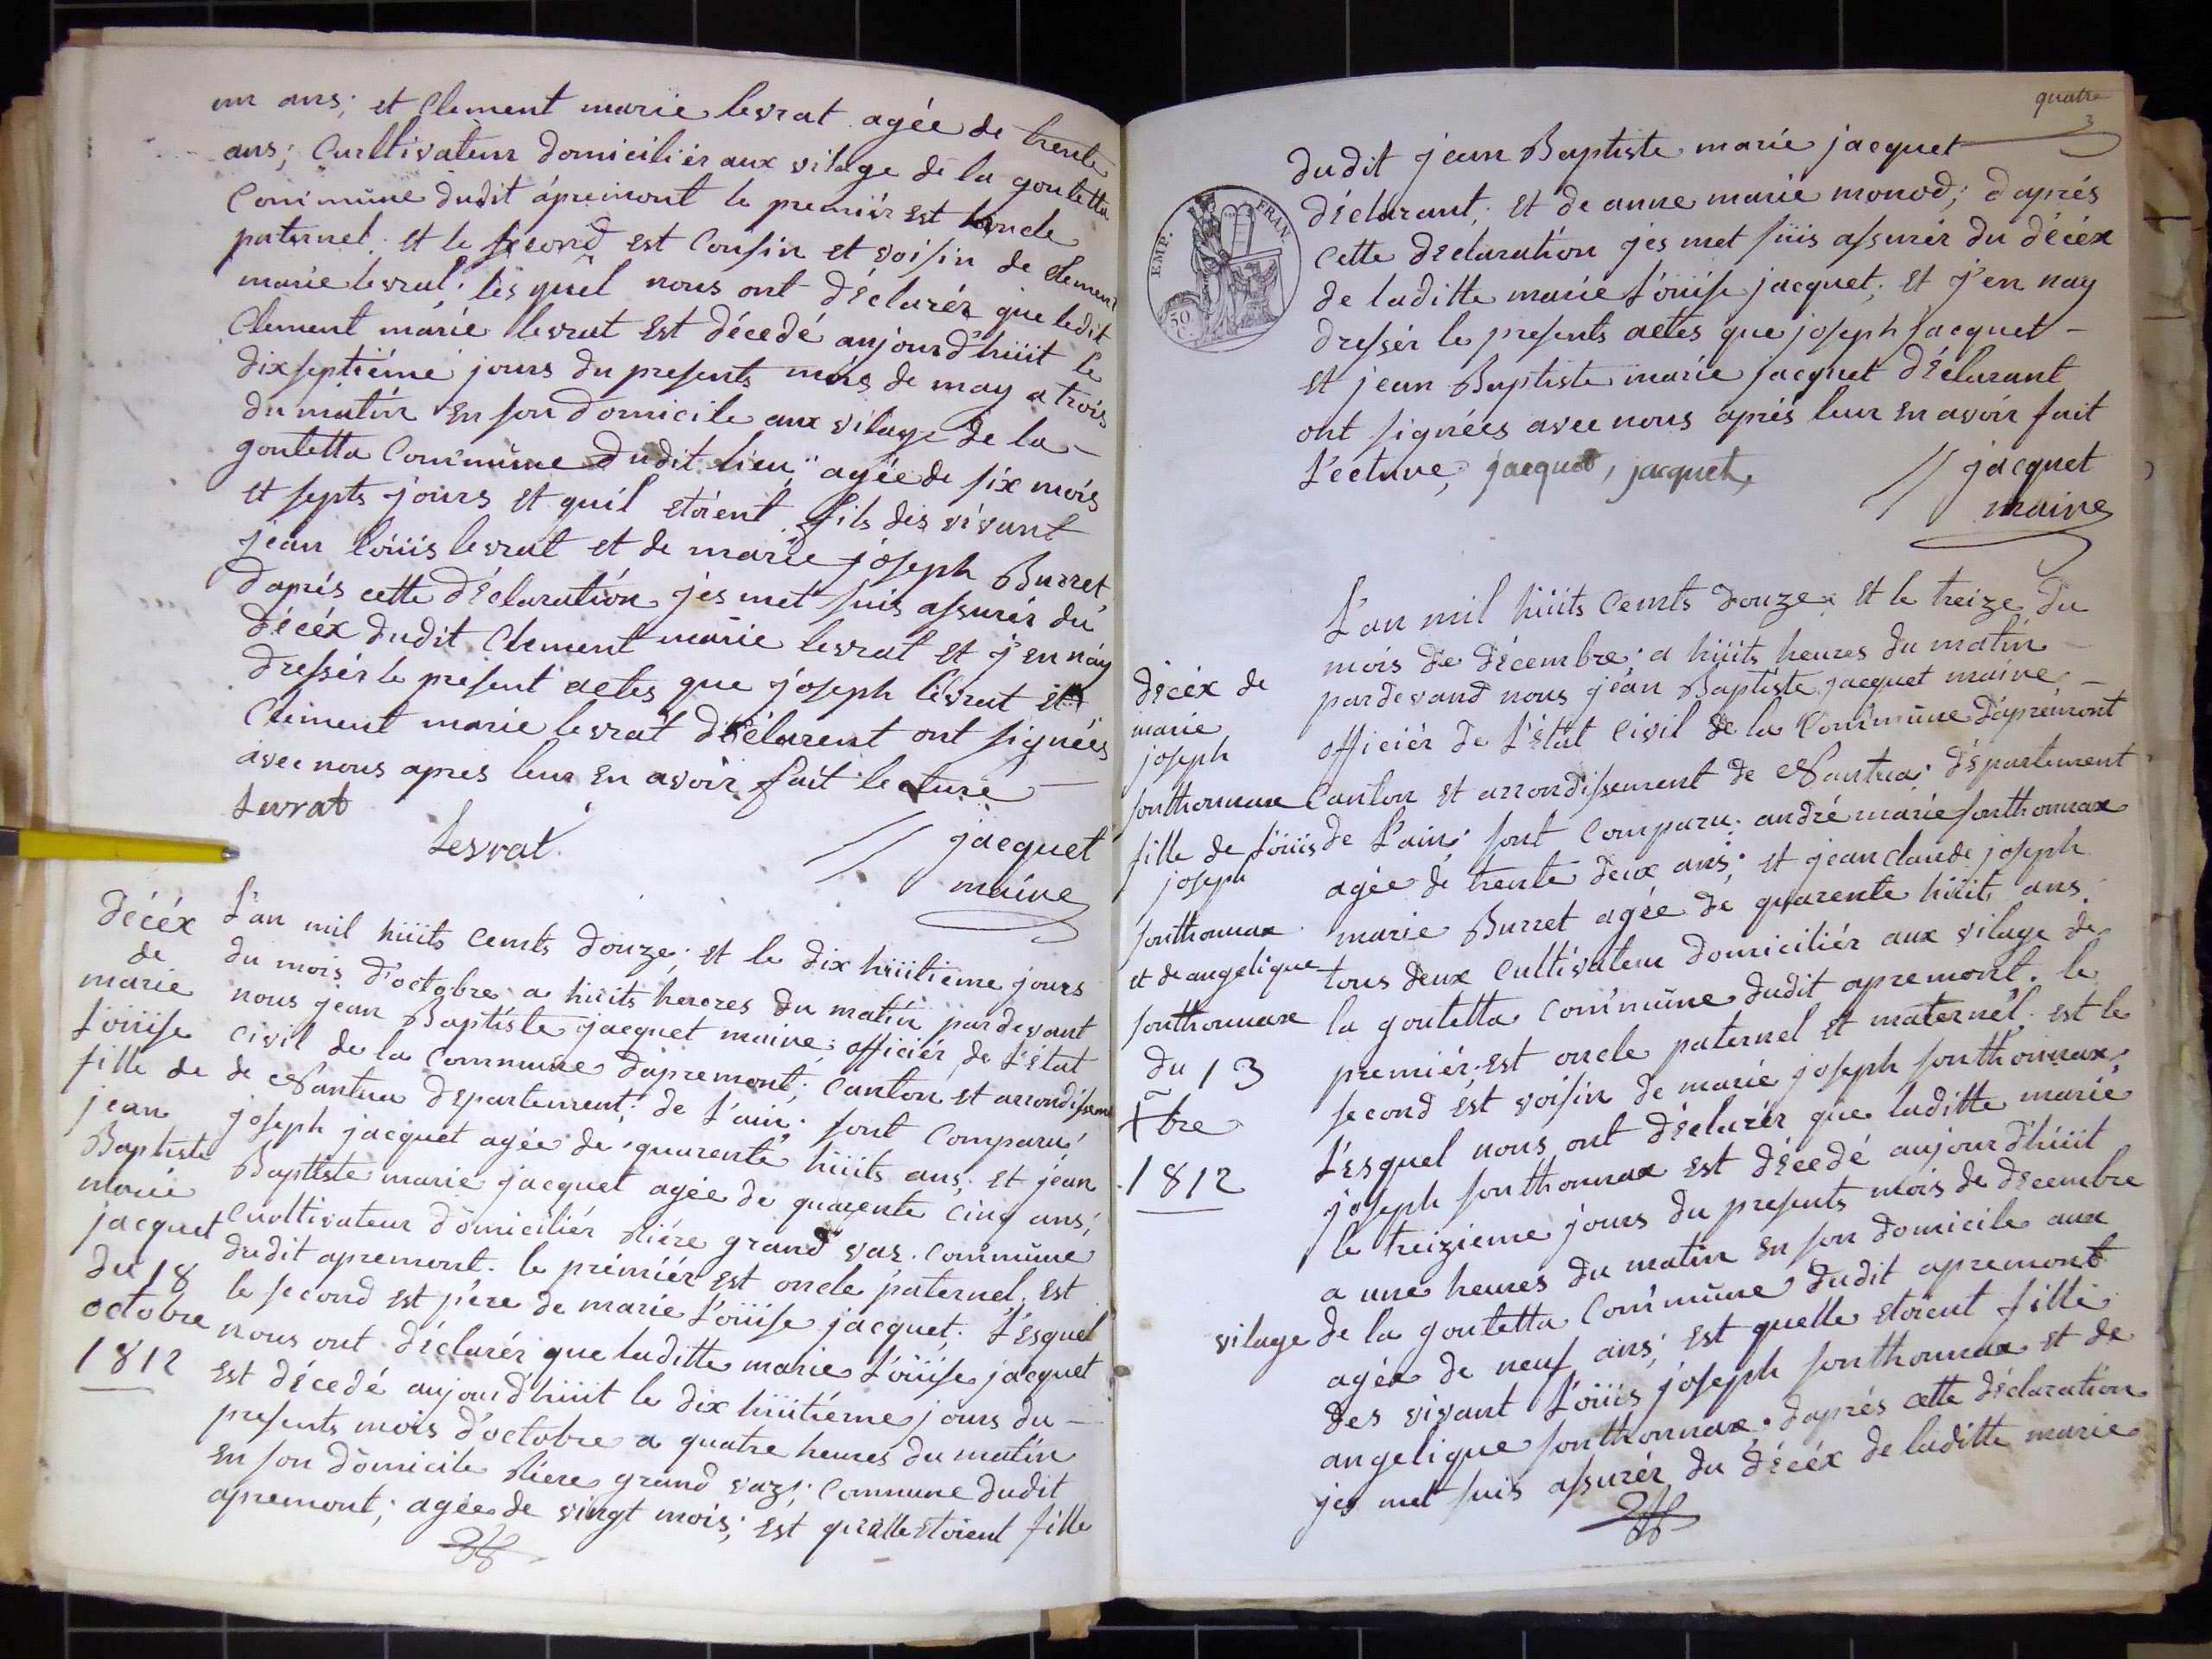 un ans; et Clement marie levrat agée de trente
ans; Curltivateur domiciliér aux vilage de la goutetta
Commune dudit ápremont le premiér est honcle
paternel. et le second est Cousin et voisin de Clement
marie levrat; les quel nous ont déclarér que ledit
Clement marie levrat Est décedé aujourd'hüit le
dixseptiéme jours du presents mois de may a trois
du matin en son domicile aux vilage de la -
goutetta Commune dudit lieu; agée de six mois
et septs jours et quil etoient fils des vivant
jean loüis levrat et de marie joseph Burret,
daprés cette déclaration jes met suis assurér du
décéx dudit Clement marie levrat et j'en n'ay
dressér le present actes que joseph levrat et
Clément marie levrat déclarent ont signées
avec nous apres leur en avoir fait lecture -
Levrat
Levrat // jacquet
maire
Décéx
de
marie
Loüise
fille de
jean
Baptiste
marie
jacquet
du 18
octobre
1812
L'an mil hüits Cents douze; et le dix hüitieme jours
du mois d'octobre a hüits heures du matin pardevant
nous jean Baptiste jacquet maire; officiér de L'état
Civil de la Commune dápremont; Canton et arrondissem
de Nantua Département; de L'ain; sont Comparu;
joseph jacquet agée de quarente hüits ans; et jean
Baptiste marie jacquet agée de quarente Cinq ans;
Cuoltivateur domiciliér diére grand vas. Commune
dudit apremont. le premiér est oncle paternel, Est
le second est pére de marie Loüise jacquet. L'esquel
nous ont déclarér que laditte marie Loüise jacquet
Est décedé aujourd'hüit le dix hüitiéme jours du -
presents mois d'octobre a quatre heures du matin
en son domicile diere grand vaz; Commune dudit
apremont; agée de vingt mois; est quelle etoient fille
quatre
3
dudit jean Baptiste marie jacquet
déclarant; et de anne marie monod; d'aprés
cette déclaration jes met suis assurér du décéx
de laditte marie Loüise jacquet; et j'en nay
dressér le presents actes que joseph jacquet -
et jean Baptiste marie jacquet déclarant
ont signées avec nous aprés leur en avoir fait
Lecture, jacquet, jacquet,
// jacquet
maire
EMP. FRAN.
50
C.
Décéx de
marie
joseph
sonthonnax
fille de Loüis
joseph
sonthonnax
et de angelique
sonthonnax
du 13
Xbre
1812
L'an mil hüits Cents douze et le treize du
mois de décembre; a hüits heures du matin -
pardevand nous jean Baptiste jacquet maire -
officiér de L'état Civil de la Commune Dápremont
Canton et arrondissement de Nantua; département
de L'ain; sont Comparu. andré marie sonthonnax
agée de trente deux ans; et jean claude joseph
marie Burret agée de quarente hüit ans.
tous deux Cultivateur domiciliér aux vilage de
la goutetta Commune dudit apremont. le
premiér est oncle paternel et maternel. est le
second est voisin de marie joseph sonthonnax;
L'esquel nous ont déclarér que laditte marie
joseph sonthonnax est décedé aujourd'hüit
le treizieme jours du presents mois de décembre
a une heures du matin en son domicile aux
vilage de la goutetta Commune dudit apremont
agée de neuf ans; est quelle etoient fille
des vivant Loüis joseph sonthonnax et de
angelique sonthonnax. daprés cette déclaration
jes met suis assurér du décéx de laditte marie